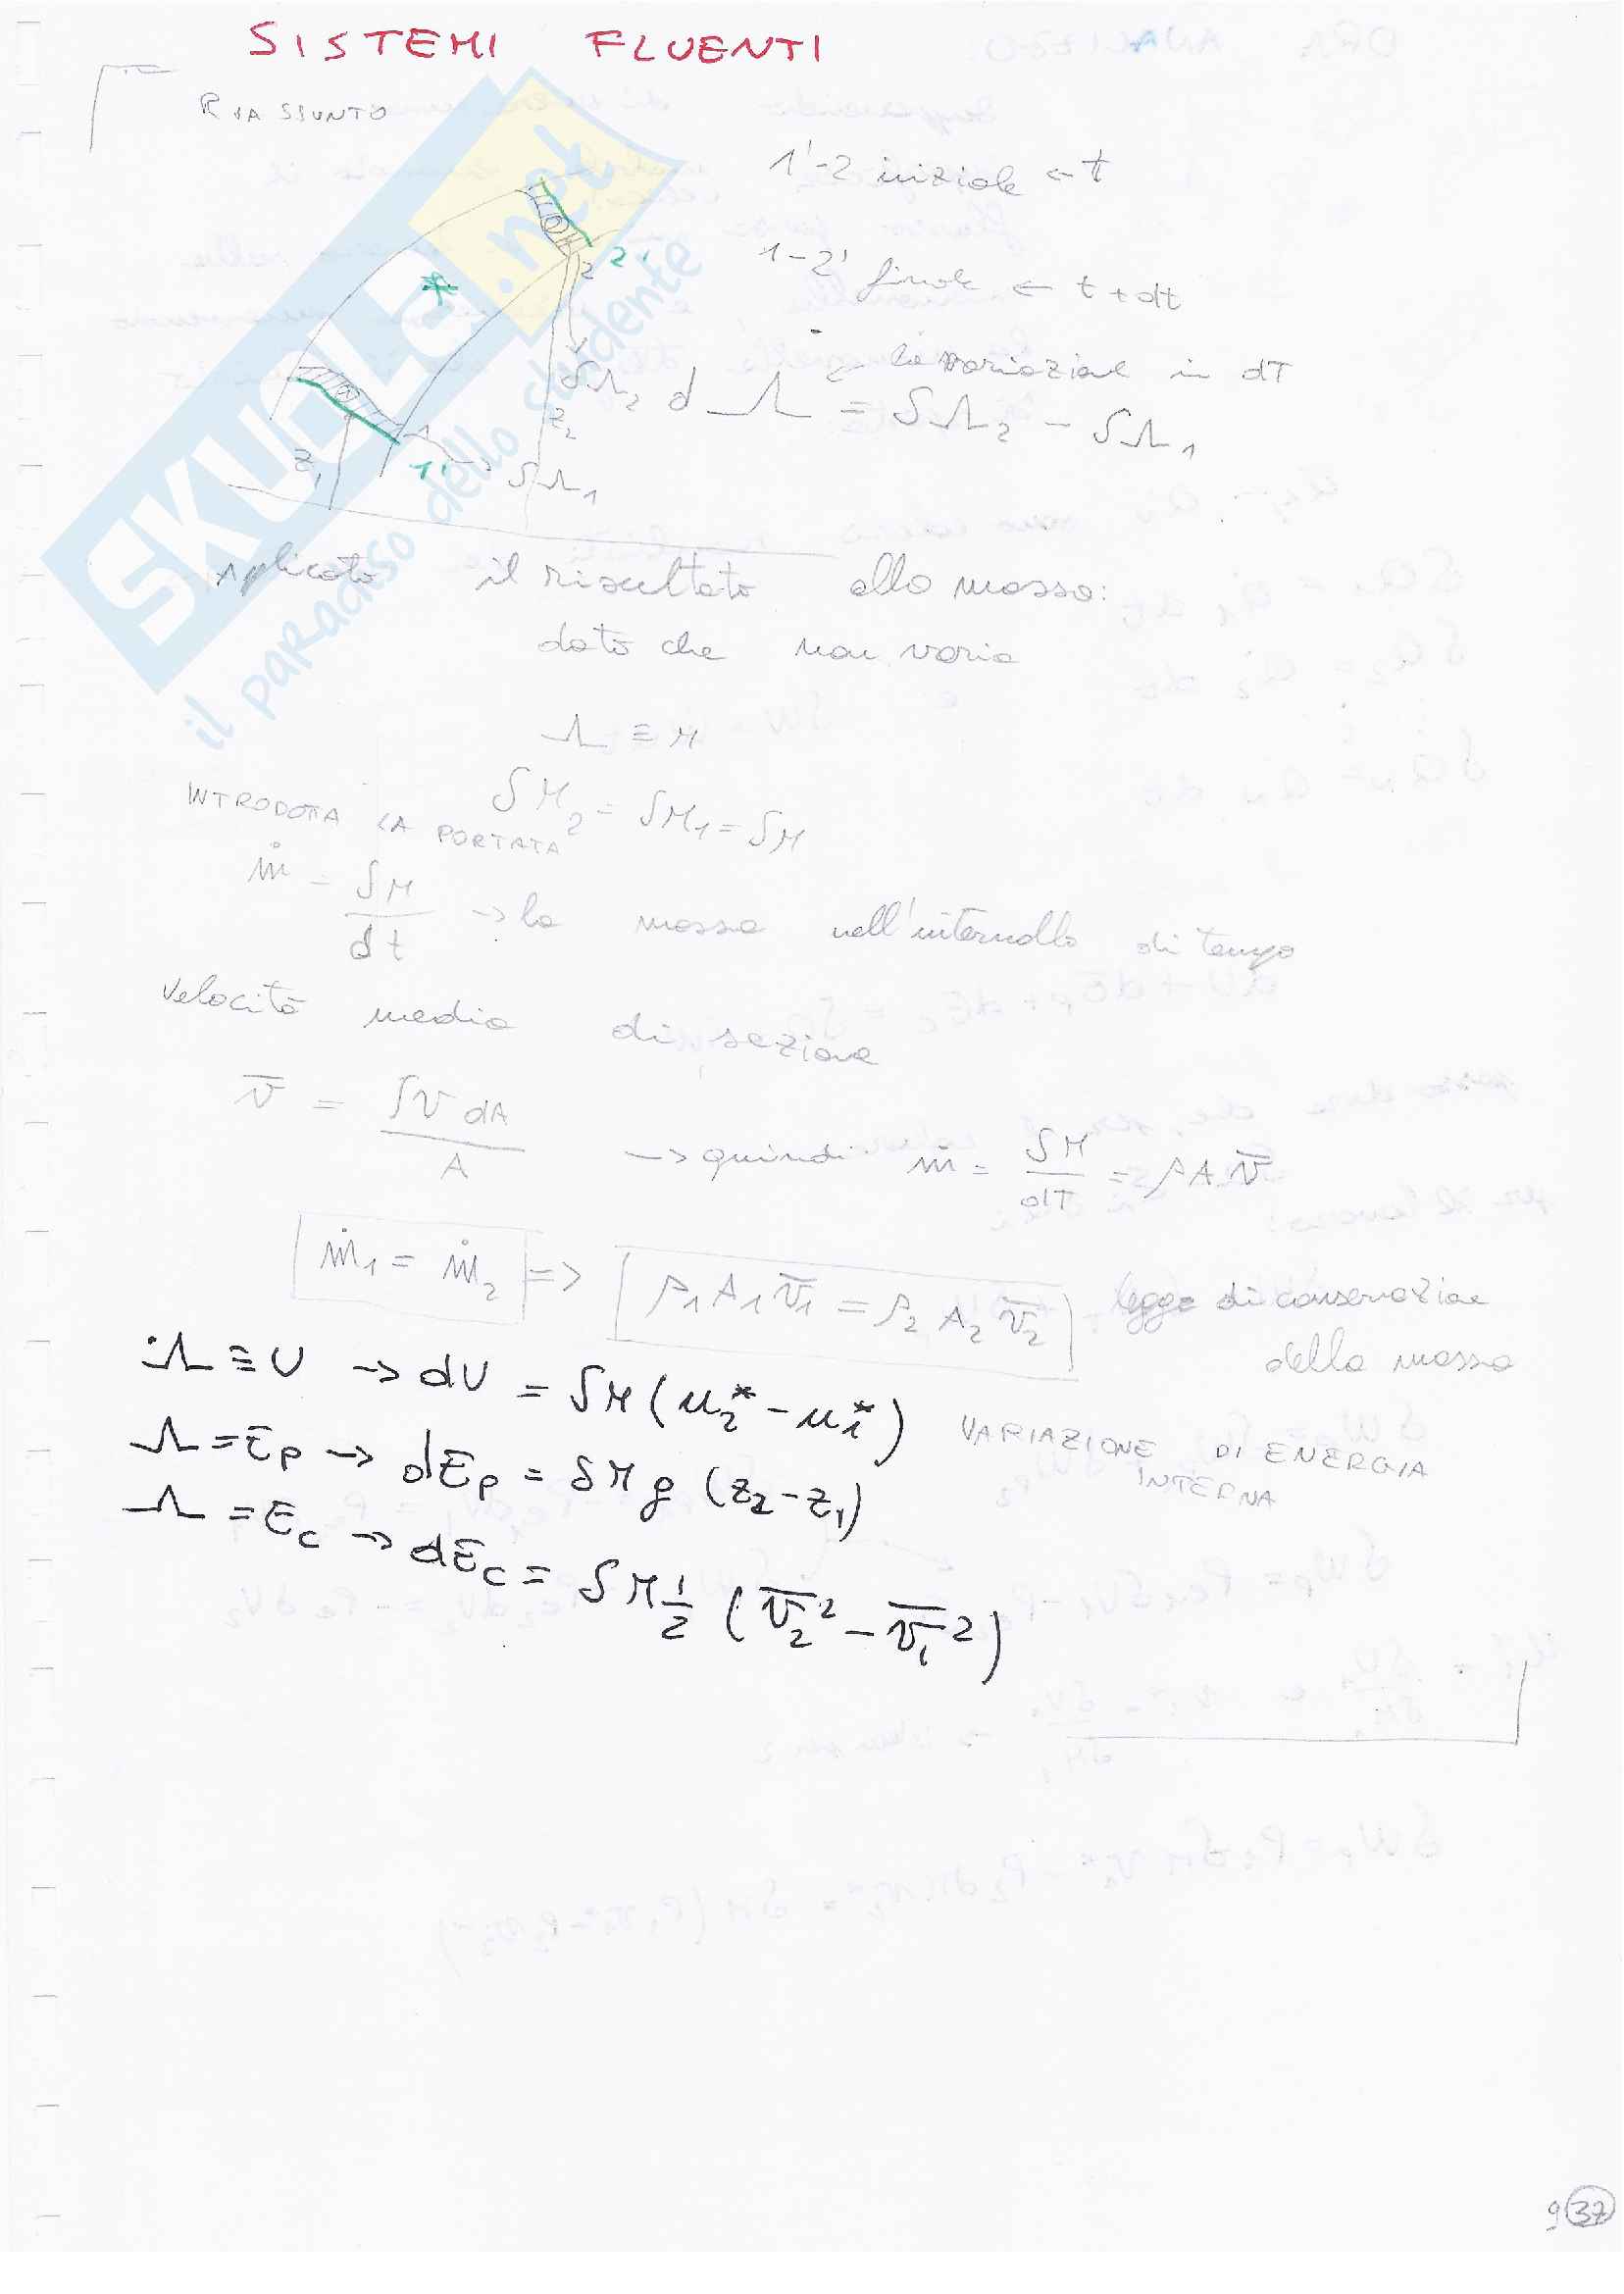 SISTEMI FLUENTI
RIASSUNTO
1'-2 iniziale ← t
1-2' finale ← t + dt
la variazione in dT
dΛ = δΛ2 - δΛ1
2 2'
z2
δΛ2
z1
1
1' → δΛ1
SKUOLA.net
il paradiso dello studente
Applicato il risultato alla massa:
dato che non varia
Λ ≡ M
δM2 = δM1 = δM
INTRODOTTA LA PORTATA
ṁ = δM/dt → la massa nell'intervallo di tempo
Velocità media di sezione
v̄ = ∫v dA / A → quindi ṁ = δM/dT = ρ A v̄
ṁ1 = ṁ2 => ρ1 A1 v̄1 = ρ2 A2 v̄2 legge di conservazione
della massa
Λ ≡ U → dU = δM (u2* - u1*) VARIAZIONE DI ENERGIA
INTERNA
Λ = Ep → dEp = δM g (z2 - z1)
Λ = Ec → dEc = δM 1/2 (v̄2² - v̄1²)
9 37